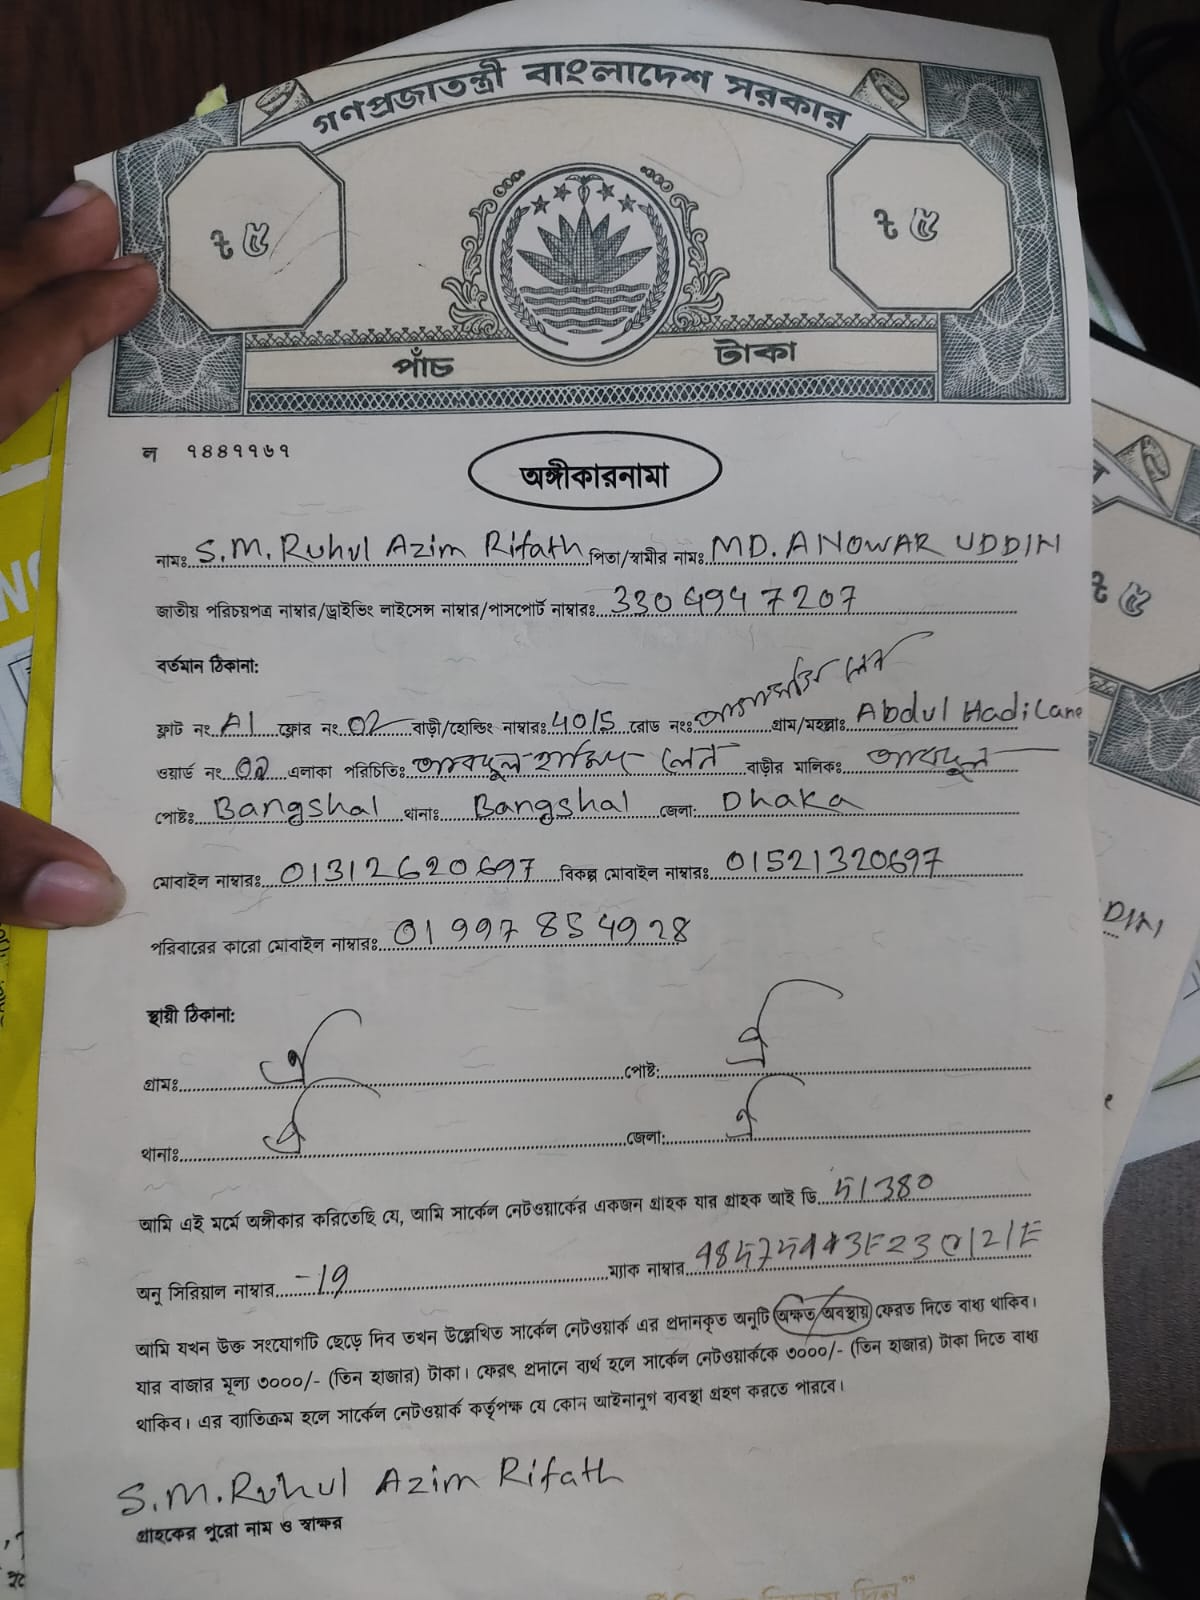 গণপ্রজাতন্ত্রী বাংলাদেশ সরকার
৳ ৫ ৳ ৫
পাঁচ টাকা
ল ৭৪৪৭৭৬৭
অঙ্গীকারনামা
নামঃ S.M. Ruhul Azim Rifath পিতা/স্বামীর নামঃ MD. ANOWAR UDDIN
জাতীয় পরিচয়পত্র নাম্বার/ড্রাইভিং লাইসেন্স নাম্বার/পাসপোর্ট নাম্বারঃ 3304947207
বর্তমান ঠিকানা:
ফ্লাট নং A1 ফ্লোর নং 02 বাড়ী/হোল্ডিং নাম্বারঃ 40/5 রোড নংঃ লেন গ্রাম/মহল্লাঃ Abdul Hadi Lane
ওয়ার্ড নং 02 এলাকা পরিচিতিঃ আবদুল হাদি লেন বাড়ীর মালিকঃ আবদুল
পোষ্টঃ Bangshal থানাঃ Bangshal জেলা: Dhaka
মোবাইল নাম্বারঃ 01312620697 বিকল্প মোবাইল নাম্বারঃ 01521320697
পরিবারের কারো মোবাইল নাম্বারঃ 01997854928
স্থায়ী ঠিকানা:
গ্রামঃ ঐ পোষ্ট: ঐ
থানাঃ ঐ জেলা: ঐ
আমি এই মর্মে অঙ্গীকার করিতেছি যে, আমি সার্কেল নেটওয়ার্কের একজন গ্রাহক যার গ্রাহক আই ডি 51380
অনু সিরিয়াল নাম্বার -19 ম্যাক নাম্বার
আমি যখন উক্ত সংযোগটি ছেড়ে দিব তখন উল্লেখিত সার্কেল নেটওয়ার্ক এর প্রদানকৃত অনুটি অক্ষত/অবস্থায় ফেরত দিতে বাধ্য থাকিব।
যার বাজার মূল্য ৩০০০/- (তিন হাজার) টাকা। ফেরৎ প্রদানে ব্যর্থ হলে সার্কেল নেটওয়ার্ককে ৩০০০/- (তিন হাজার) টাকা দিতে বাধ্য
থাকিব। এর ব্যাতিক্রম হলে সার্কেল নেটওয়ার্ক কর্তৃপক্ষ যে কোন আইনানুগ ব্যবস্থা গ্রহণ করতে পারবে।
S.M. Ruhul Azim Rifath
গ্রাহকের পুরো নাম ও স্বাক্ষর
৳ ৫
DIN